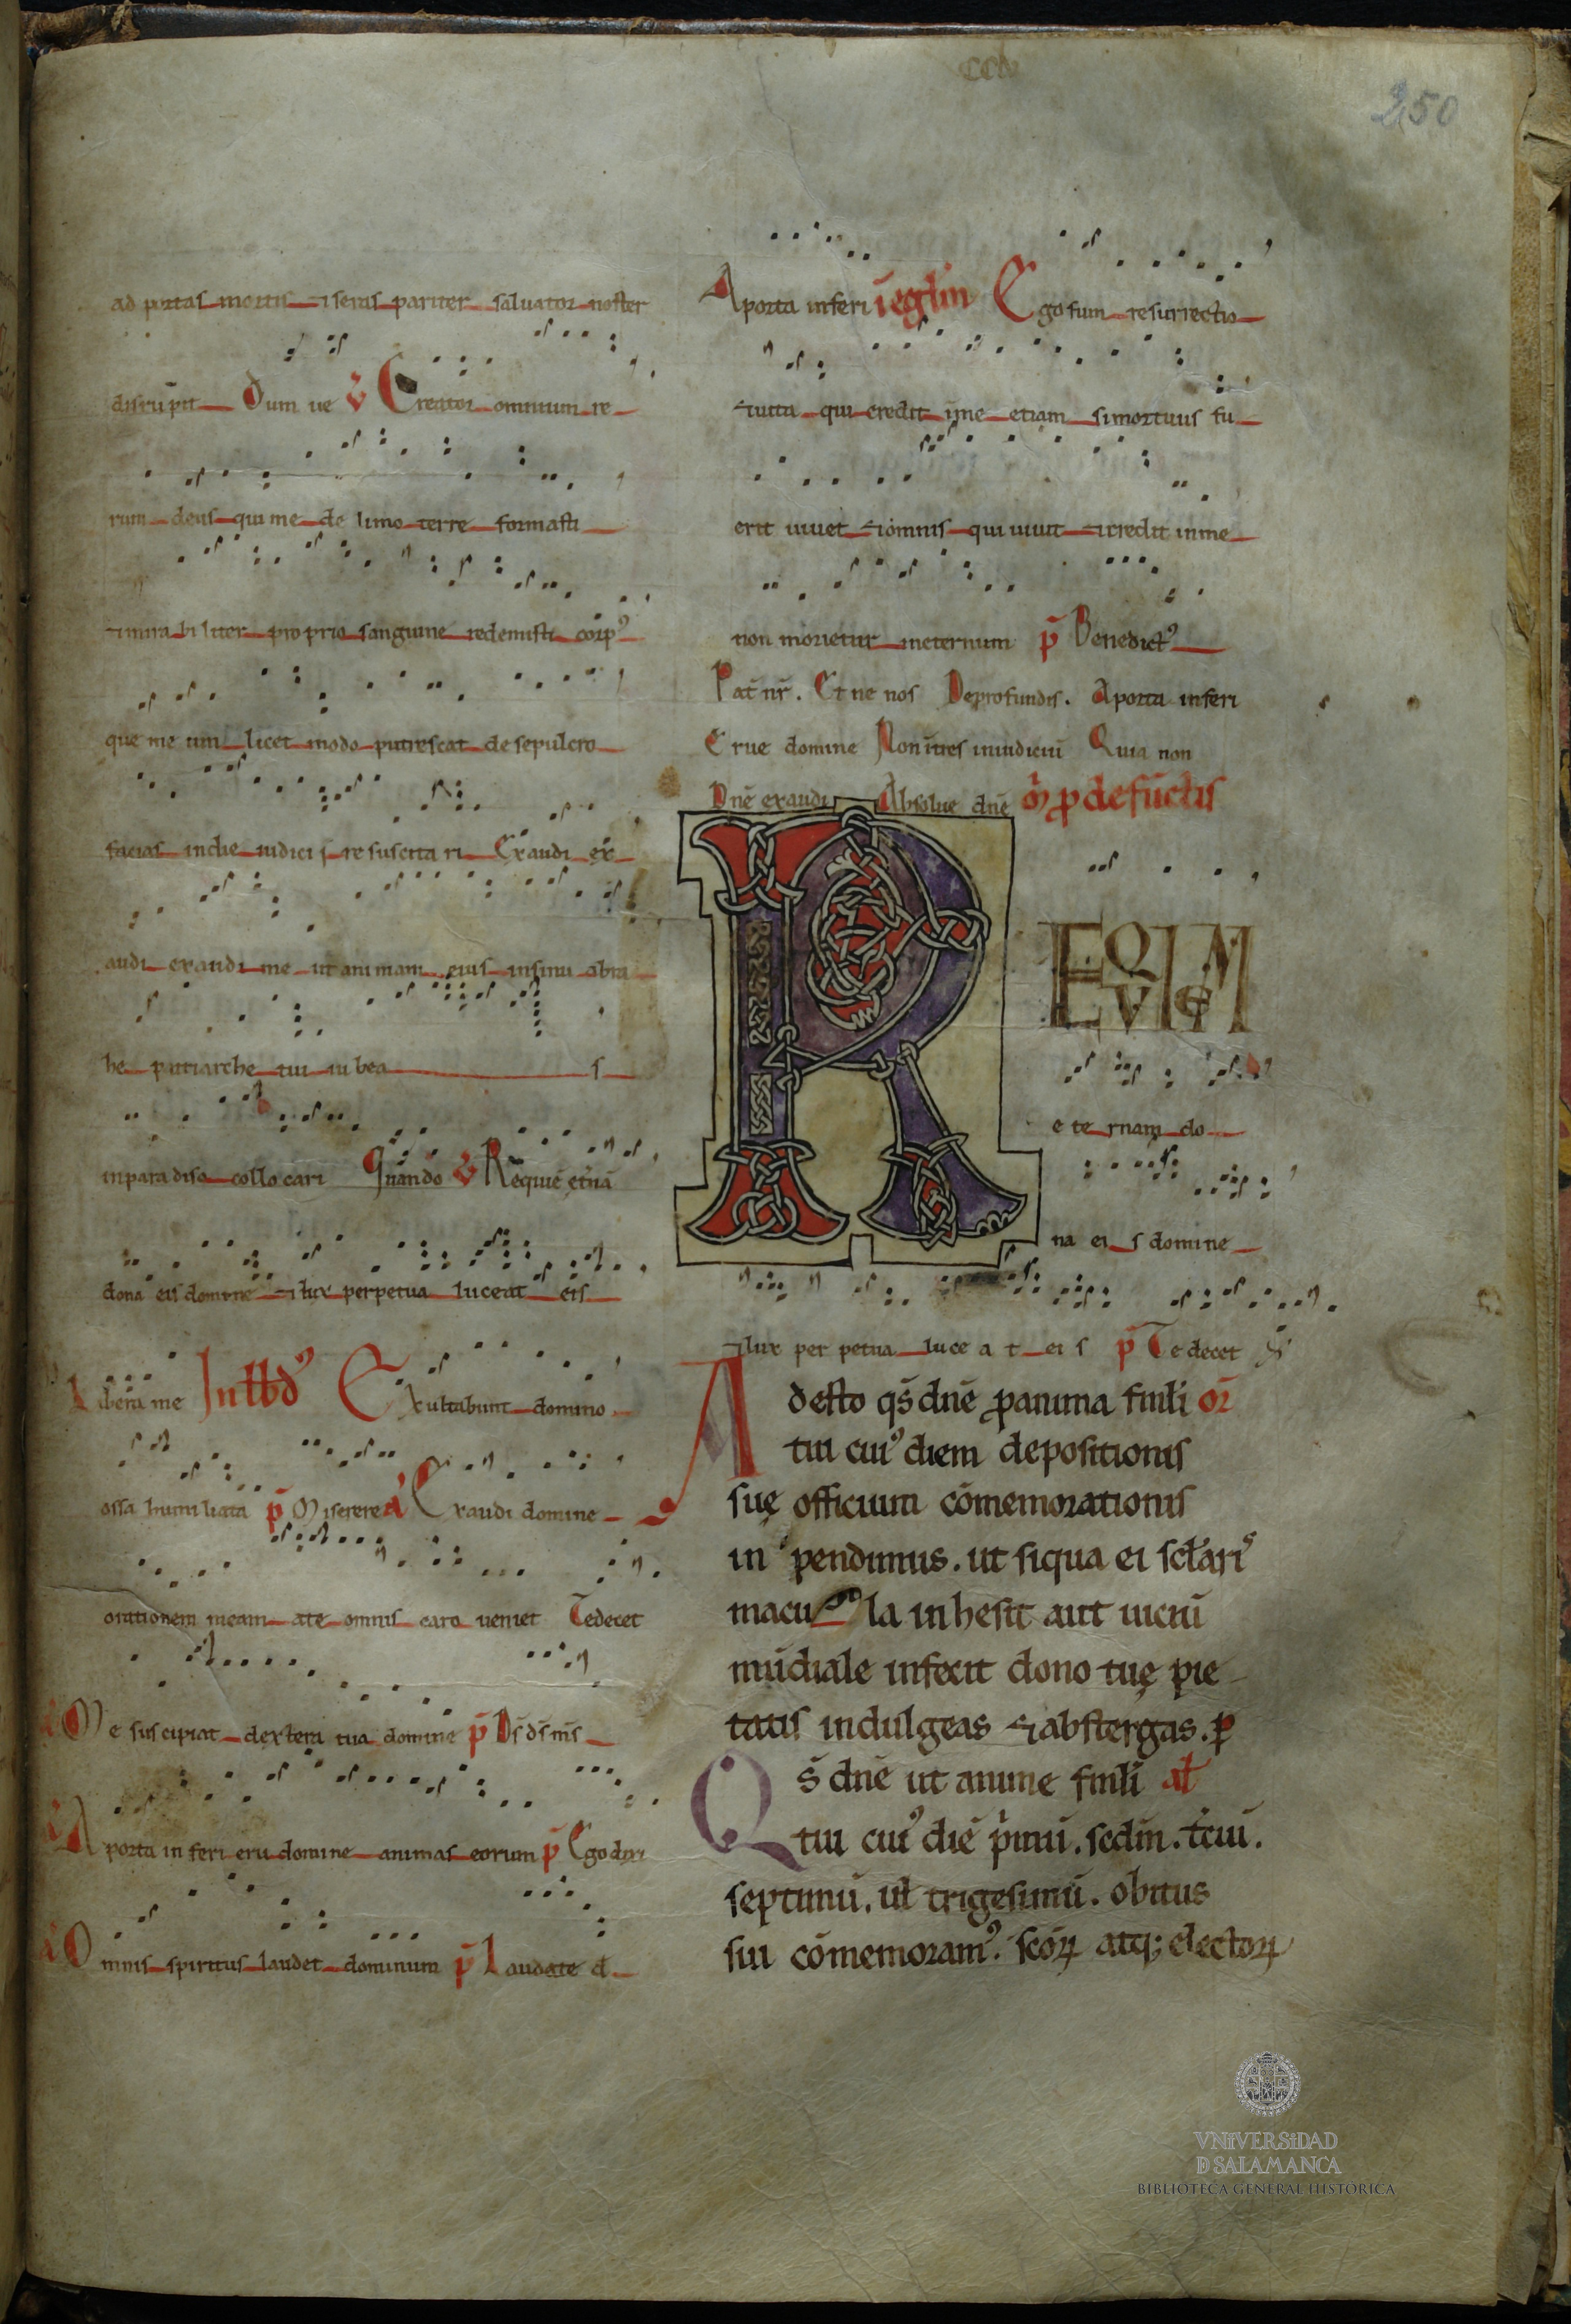 250
ad portas mortis ⁊ seras pariter saluator noster
disrupit Dum ue ℣ Creator omnium re
rum deus qui me de limo terre formasti
⁊ mira bi liter pro prio sanguine redemisti corpꝰ
que me um licet modo putrescat de sepulcro
facias in die iudici i re suscita ri Exaudi ex
audi exaudi me ut animam eius insinu abra
he patriarche tui iu bea s
inpara diso collo cari Quando ℣ Requiē et̄nā
dona eis domine ⁊ lux perpetua luceat eis
Libera me In lbdꝰ Exultabunt domino
ossa humiliata p̄ Miserere a Exaudi domine
orationem meam ate omnis caro ueniet Tedecet
a Me suscipiat dextera tua domine p̄ Ds̄ ds̄ ms̄
a A porta in feri eru domine animas eorum p̄ Ego dixi
a Omnis spiritus laudet dominum p̄ Laudate d
A porta inferi ī eglm̄ Ego sum resurrectio
⁊ uita qui credit ī me etiam si mortuus fu
erit uiuet ⁊ omnis qui uiuit ⁊ credit in me
non morietur ineternum p̄ Benedictꝰ
Pat̄ nr̄. Et ne nos Deprofundis. Aporta inferi
Erue domine Non īt̄res in iudiciū Quia non
Dn̄e exaudi Absolue dn̄e ꝓ defūctis
REQVIEM
e te rnam do
na ei s domine
⁊ lux per petua luce a t ei s p̄ Te decet
Adesto qs̄ dn̄e ꝓ anima famli or̄
tui cuiꝰ diem depositionis
suę officium cōmemorationis
in pendimus. ut siqua ei sclari
macu la inhesit aut uiciū
mūdiale infecit dono tuę pie
tatis indulgeas ⁊ abstergas. ꝑ
Qs̄ dn̄e ut anime famli al
tui cuiꝰ diē p̄imū. scdm̄. t̄ciū.
septimū. ul trigesimū. obitus
sui cōmemoramꝰ. scōꝝ atq; electoꝝ
VNiVERSiDAD
D SALAMANCA
BIBLIOTECA GENERAL HISTÓRICA